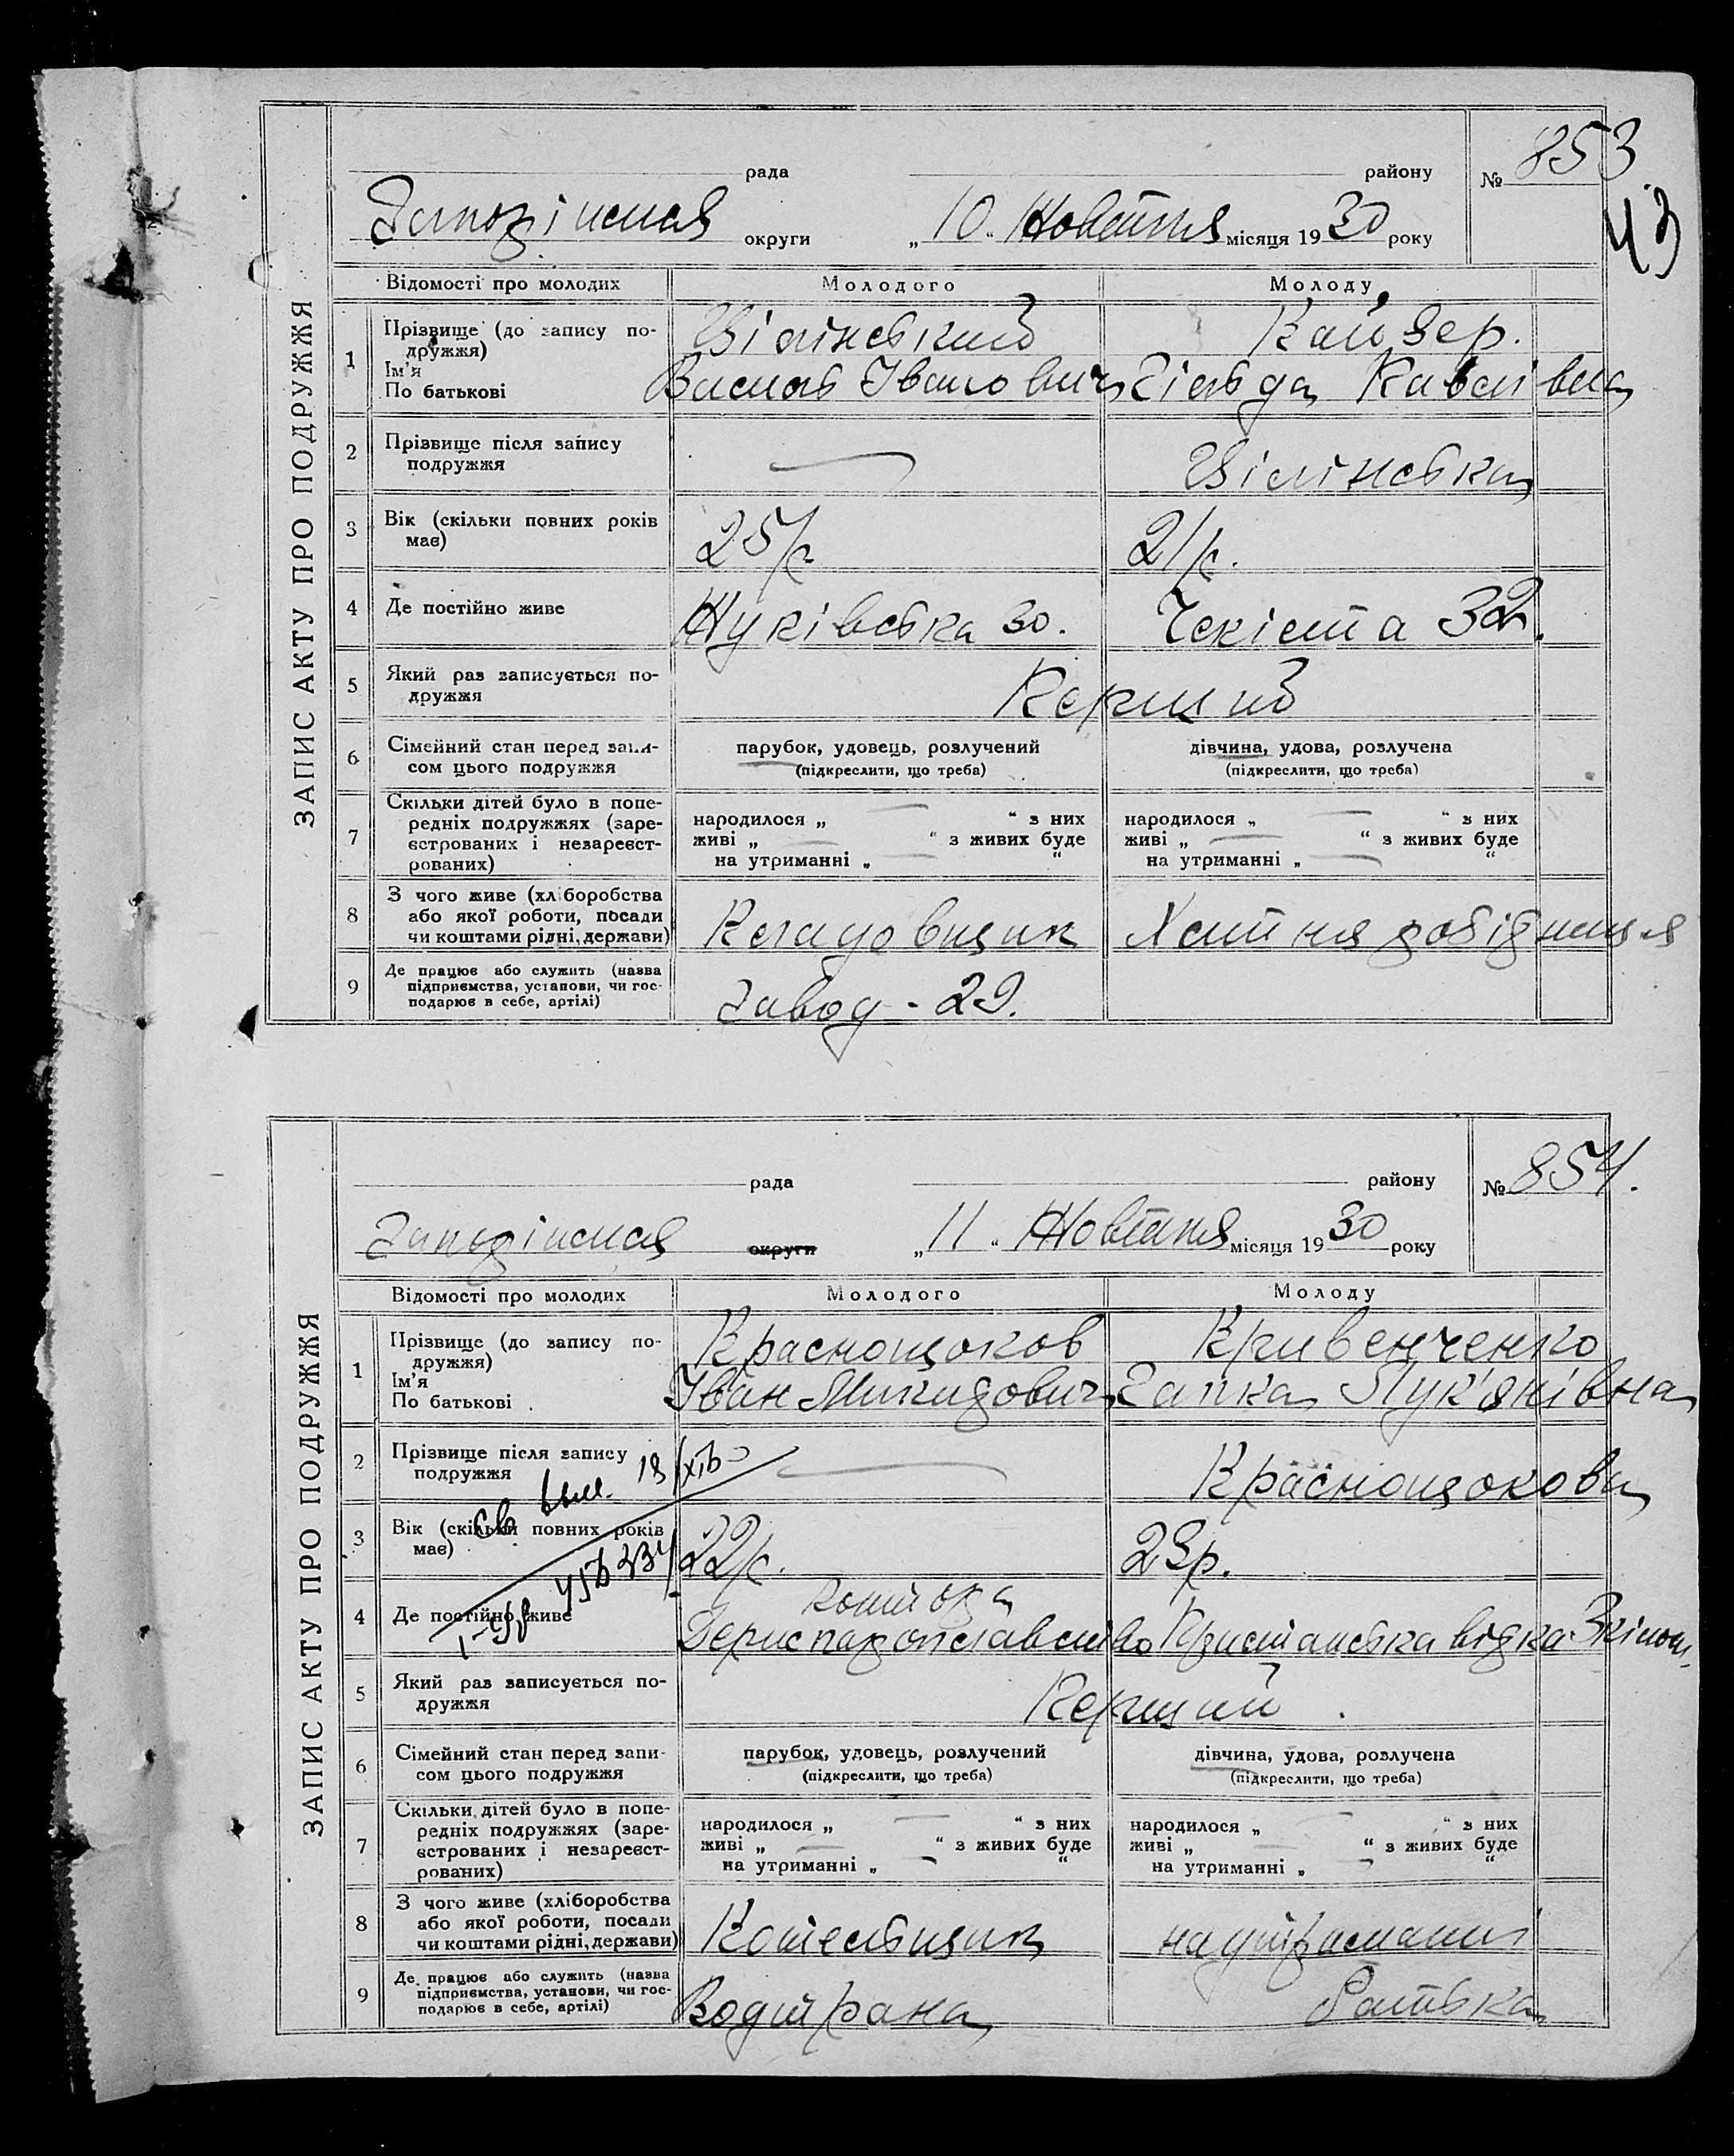 ЗАПИС АКТУ ПРО ПОДРУЖЖЯ
рада району № 853
43
округи „10“ Жовтня місяця 1930 року
Відомості про молодих Молодого Молоду
1 Прізвище (до запису подружжя) Кайзер.
Ім'я
По батькові Іванович
2 Прізвище після запису подружжя —
3 Вік (скільки повних років має) 25/р. 21/р.
4 Де постійно живе Жуківська 30. Чекіста 32.
5 Який раз записується подружжя Перший
6 Сімейний стан перед записом цього подружжя парубок, удовець, розлучений дівчина, удова, розлучена
(підкреслити, що треба) (підкреслити, що треба)
7 Скільки дітей було в попередніх подружжях (зареєстрованих і незареєстрованих)
народилося „ — “ з них народилося „ — “ з них
живі „ — “ з живих буде живі „ — “ з живих буде
на утриманні „ — “ на утриманні „ — “
8 З чого живе (хліборобства або якої роботи, посади чи коштами рідні, держави) Хатня робідниця
9 Де працює або служить (назва підприємства, установи, чи господарює в себе, артілі) Завод - 29.
ЗАПИС АКТУ ПРО ПОДРУЖЖЯ
рада району № 854.
округи „11“ Жовтня місяця 1930 року
Відомості про молодих Молодого Молоду
1 Прізвище (до запису подружжя) Краснощоков Кривенченко
Ім'я
По батькові Іван Микидович Галка Лук'янівна
2 Прізвище після запису подружжя — Краснощокова
3 Вік (скільки повних років має) 22/р. 23р.
4 Де постійно живе
5 Який раз записується подружжя Перший
6 Сімейний стан перед записом цього подружжя парубок, удовець, розлучений дівчина, удова, розлучена
(підкреслити, що треба) (підкреслити, що треба)
7 Скільки дітей було в попередніх подружжях (зареєстрованих і незареєстрованих)
народилося „ — “ з них народилося „ — “ з них
живі „ — “ з живих буде живі „ — “ з живих буде
на утриманні „ — “ на утриманні „ — “
8 З чого живе (хліборобства або якої роботи, посади чи коштами рідні, держави) на утриманні
9 Де працює або служить (назва підприємства, установи, чи господарює в себе, артілі) Водтрана батька